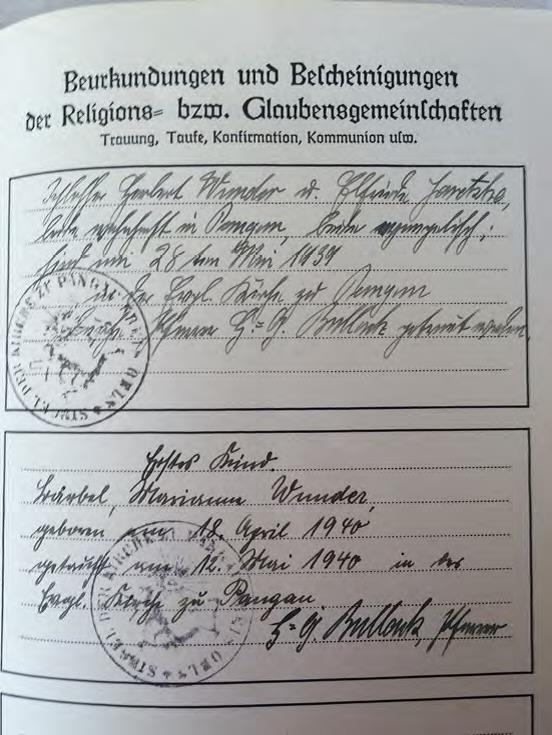 Beurkundungen und Bescheinigungen
der Religions= bzw. Glaubensgemeinschaften
Trauung, Taufe, Konfirmation, Kommunion usw.
Schlosser Herbert Wunder u. Elfriede
beide wohnhaft in Pangau, beide evangelisch;
sind am 28 ten Mai 1939
in der Evgl. Kirche zu Pangau
durch Pfarrer H.=G. Bullock getraut worden.
SIEGEL DER KIRCHE ZU PANGAU KREIS OELS
Erstes Kind.
Bärbel, Marianne Wunder,
geboren am 18. April 1940
getauft am 12. Mai 1940 in der
Evgl. Kirche zu Pangau.
H.=G. Bullock, Pfarrer
SIEGEL DER KIRCHE OELS